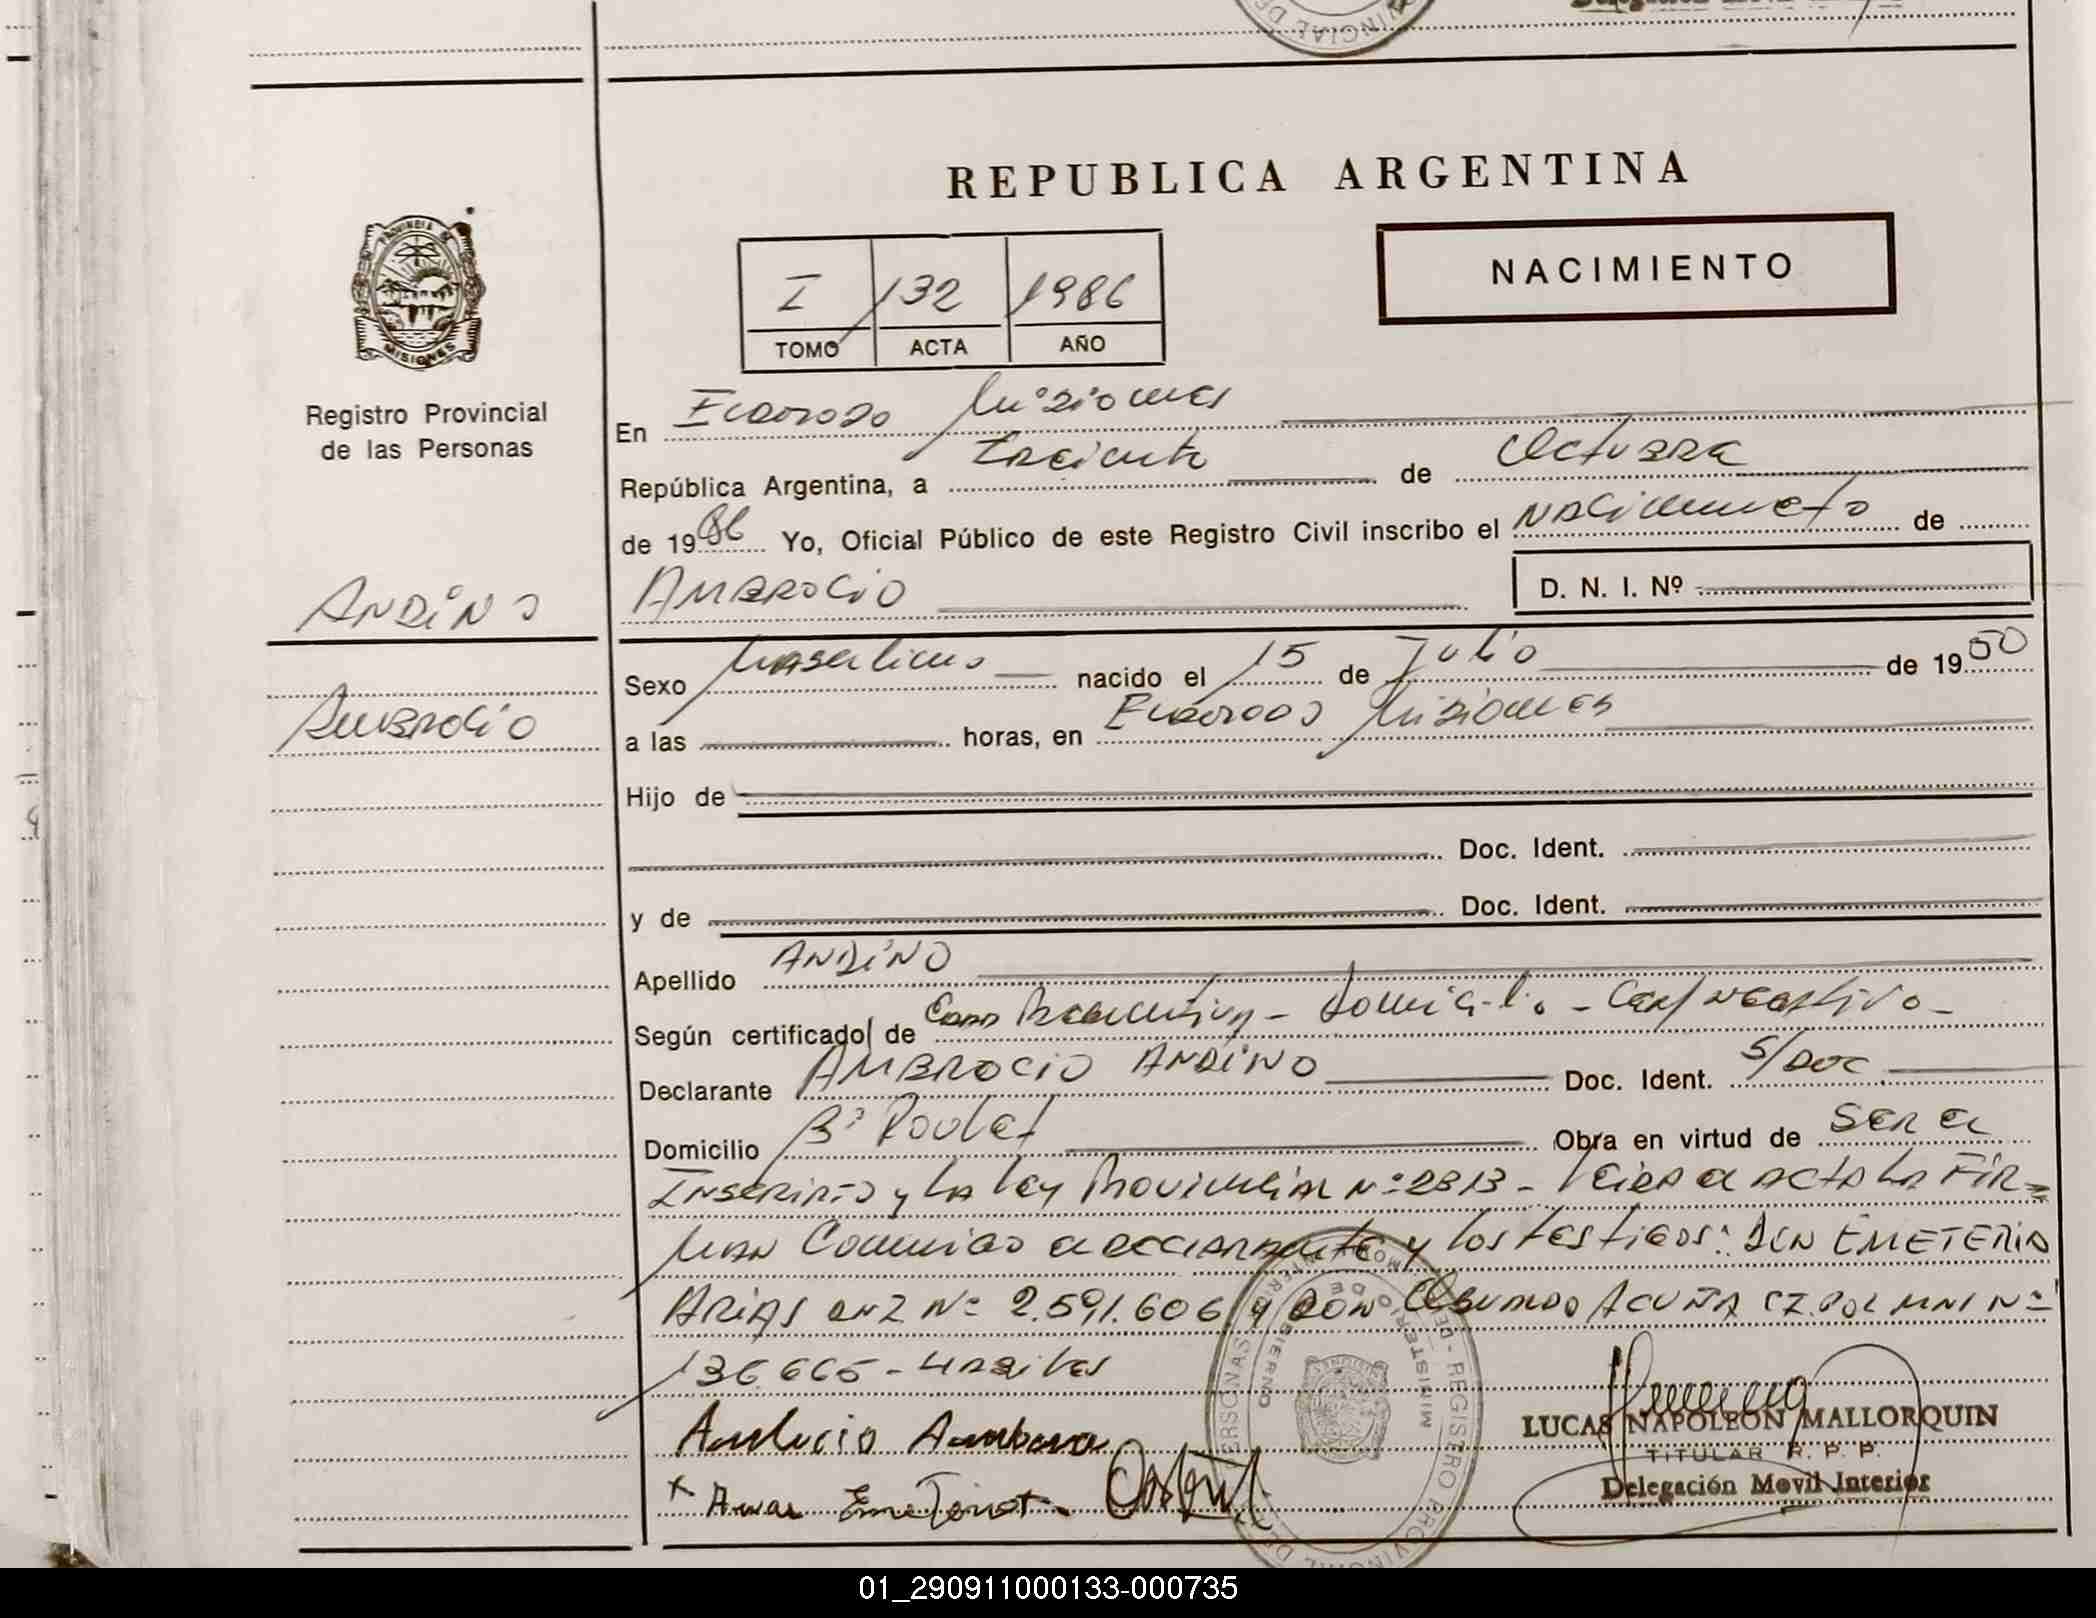 REPUBLICA ARGENTINA
NACIMIENTO
I 132 1986
TOMO ACTA AÑO
PROVINCIA DE
MISIONES
Registro Provincial
de las Personas
En Eldorado Misiones
República Argentina, a treinta de Octubre
de 1986 Yo, Oficial Público de este Registro Civil inscribo el Nacimiento de
ANDINO
AMBROCIO
D. N. I. Nº
Sexo Masculino nacido el 15 de Julio de 1950
AMBROCIO
a las horas, en Eldorado Misiones
Hijo de
Doc. Ident.
y de Doc. Ident.
Apellido ANDINO
Según certificado de
Declarante AMBROCIO ANDINO Doc. Ident. S/DOC.
Domicilio Bº Obra en virtud de SER el
INSCRIPTO y LA Ley PROVINCIAL Nº 2313 - Leida el ACTA LA FIR=
MAN Conmigo el declarante y los testigos: DON EMETERIO
ARIAS Nº 2.591.606 y DON ACUÑA Nº
136.665 -
LUCAS NAPOLEON MALLORQUIN
TITULAR R. P. P.
Delegación Movil Interior
01_290911000133-000735